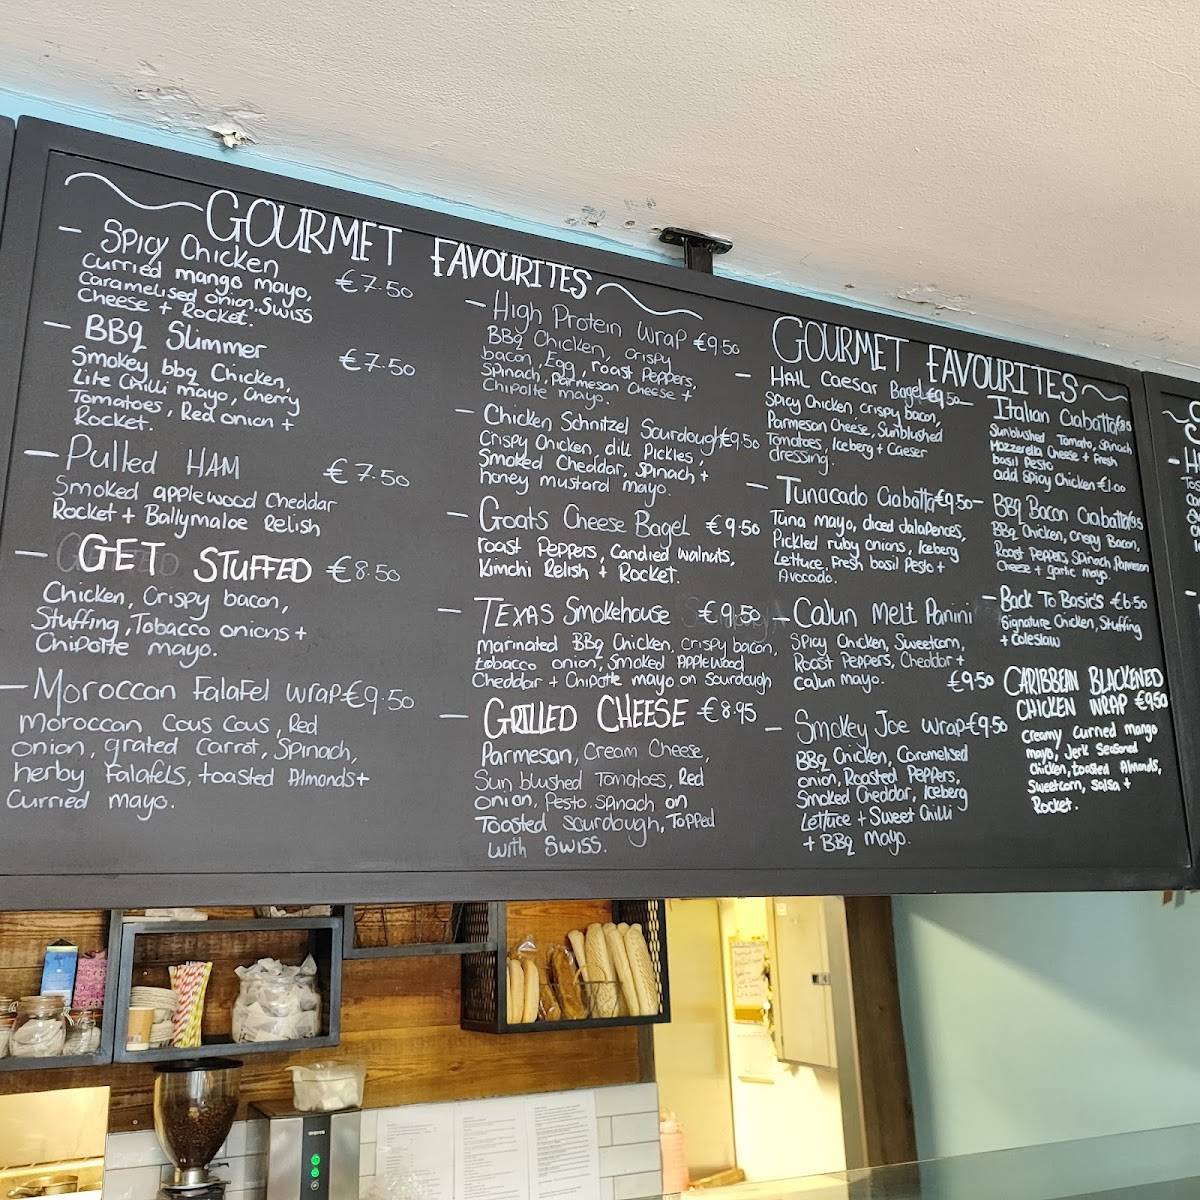 GOURMET FAVOURITES
- Spicy Chicken €7.50
Curried mango mayo,
Caramelised onion, Swiss
Cheese + Rocket.
- BBQ Slimmer €7.50
Smokey bbq Chicken,
Lite Chilli mayo, Cherry
Tomatoes, Red onion +
Rocket.
- Pulled HAM €7.50
Smoked applewood Cheddar
Rocket + Ballymaloe Relish
- GET STUFFED €8.50
Chicken, Crispy bacon,
Stuffing, Tobacco onions +
Chipotle mayo.
- Moroccan Falafel wrap €9.50
Moroccan Cous Cous, Red
onion, grated Carrot, Spinach,
herby Falafels, toasted Almonds +
Curried mayo.
- High Protein wrap €9.50
BBQ Chicken, crispy
bacon, Egg, roast Peppers,
Spinach, Parmesan Cheese +
Chipotle mayo.
- Chicken Schnitzel Sourdough €9.50
Crispy Chicken, dill Pickles,
Smoked Cheddar, Spinach +
honey mustard mayo.
- Goats Cheese Bagel €9.50
roast Peppers, Candied walnuts,
Kimchi Relish + Rocket.
- TEXAS Smokehouse €9.50
Marinated BBQ Chicken, crispy bacon,
tobacco onion, Smoked Applewood
Cheddar + Chipotle mayo on Sourdough
- GRILLED CHEESE €8.95
Parmesan, Cream Cheese,
Sun blushed Tomatoes, Red
Onion, Pesto, Spinach on
Toasted Sourdough, Topped
with SWISS.
GOURMET FAVOURITES
- HAIL Caesar Bagel €9.50
Spicy Chicken, crispy bacon,
Parmesan Cheese, Sunblushed
Tomatoes, Iceberg + Caeser
dressing.
- Tunacado Ciabatta €9.50
Tuna mayo, diced Jalapences,
Pickled ruby onions, Iceberg
Lettuce, Fresh basil Pesto +
Avocado.
- Cajun Melt Panini
Spicy Chicken, Sweetcorn,
Roast Peppers, Cheddar +
Cajun mayo. €9.50
- Smokey Joe wrap €9.50
BBQ Chicken, Caramelised
onion, Roasted Peppers,
Smoked Cheddar, Iceberg
Lettuce + Sweet Chilli
+ BBQ Mayo.
- Italian Ciabatta
Sunblushed Tomato, Spinach
Mozzerella Cheese + Fresh
basil Pesto
add Spicy Chicken €1.00
- BBQ Bacon Ciabatta
BBQ Chicken, crispy Bacon,
Roast Peppers, Spinach, Parmesan
Cheese + garlic mayo.
- Back To Basics €6.50
Signature Chicken, Stuffing
+ Coleslaw
CARIBBEAN BLACKENED
CHICKEN WRAP €9.50
Creamy Curried mango
mayo, Jerk Seasoned
Chicken, toasted Almonds,
Sweetcorn, Salsa +
Rocket.